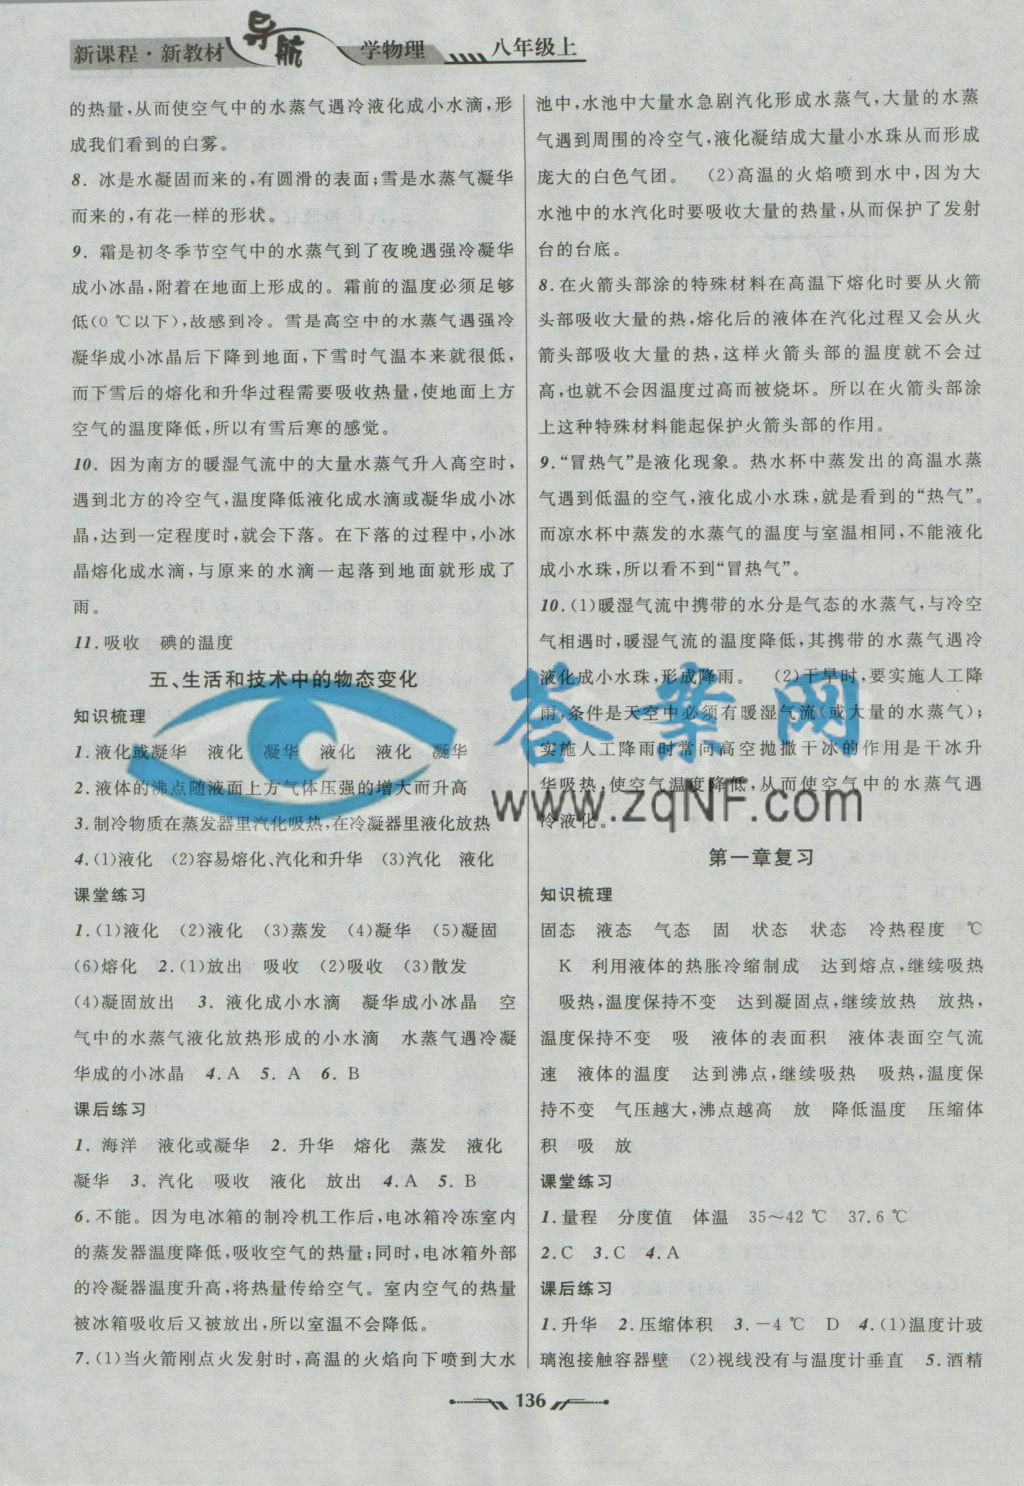 新课程·新教材 导航 学物理 八年级上
的热量,从而使空气中的水蒸气遇冷液化成小水滴,形
成我们看到的白雾。
8. 冰是水凝固而来的,有圆滑的表面;雪是水蒸气凝华
而来的,有花一样的形状。
9. 霜是初冬季节空气中的水蒸气到了夜晚遇强冷凝华
成小冰晶,附着在地面上形成的。霜前的温度必须足够
低(0 ℃以下),故感到冷。雪是高空中的水蒸气遇强冷
凝华成小冰晶后下降到地面,下雪时气温本来就很低,
而下雪后的熔化和升华过程需要吸收热量,使地面上方
空气的温度降低,所以有雪后寒的感觉。
10. 因为南方的暖湿气流中的大量水蒸气升入高空时,
遇到北方的冷空气,温度降低液化成水滴或凝华成小冰
晶,达到一定程度时,就会下落。在下落的过程中,小冰
晶熔化成水滴,与原来的水滴一起落到地面就形成了
雨。
11. 吸收 碘的温度
五、生活和技术中的物态变化
知识梳理
1. 液化或凝华 液化 凝华 液化 液化 凝华
2. 液体的沸点随液面上方气体压强的增大而升高
3. 制冷物质在蒸发器里汽化吸热,在冷凝器里液化放热
4. (1)液化 (2)容易熔化、汽化和升华 (3)汽化 液化
课堂练习
1. (1)液化 (2)液化 (3)蒸发 (4)凝华 (5)凝固
(6)熔化 2. (1)放出 吸收 (2)吸收 (3)散发
(4)凝固放出 3. 液化成小水滴 凝华成小冰晶 空
气中的水蒸气液化放热形成的小水滴 水蒸气遇冷凝
华成的小冰晶 4. A 5. A 6. B
课后练习
1. 海洋 液化或凝华 2. 升华 熔化 蒸发 液化
凝华 3. 汽化 吸收 液化 放出 4. A 5. B
6. 不能。因为电冰箱的制冷机工作后,电冰箱冷冻室内
的蒸发器温度降低,吸收空气的热量;同时,电冰箱外部
的冷凝器温度升高,将热量传给空气。室内空气的热量
被冰箱吸收后又被放出,所以室温不会降低。
7. (1)当火箭刚点火发射时,高温的火焰向下喷到大水
池中,水池中大量水急剧汽化形成水蒸气,大量的水蒸
气遇到周围的冷空气,液化凝结成大量小水珠从而形成
庞大的白色气团。 (2)高温的火焰喷到水中,因为大
水池中的水汽化时要吸收大量的热量,从而保护了发射
台的台底。
8. 在火箭头部涂的特殊材料在高温下熔化时要从火箭
头部吸收大量的热,熔化后的液体在汽化过程又会从火
箭头部吸收大量的热,这样火箭头部的温度就不会过
高,也就不会因温度过高而被烧坏。所以在火箭头部涂
上这种特殊材料能起保护火箭头部的作用。
9. “冒热气”是液化现象。热水杯中蒸发出的高温水蒸
气遇到低温的空气,液化成小水珠,就是看到的“热气”。
而凉水杯中蒸发的水蒸气的温度与室温相同,不能液化
成小水珠,所以看不到“冒热气”。
10. (1)暖湿气流中携带的水分是气态的水蒸气,与冷空
气相遇时,暖湿气流的温度降低,其携带的水蒸气遇冷
液化成小水珠,形成降雨。 (2)干旱时,要实施人工降
雨,条件是天空中必须有暖湿气流(或大量的水蒸气);
实施人工降雨时常向高空抛撒干冰的作用是干冰升
华吸热,使空气温度降低,从而使空气中的水蒸气遇
冷液化。
第一章复习
知识梳理
固态 液态 气态 固 状态 状态 冷热程度 ℃
K 利用液体的热胀冷缩制成 达到熔点,继续吸热
吸热,温度保持不变 达到凝固点,继续放热 放热,
温度保持不变 吸 液体的表面积 液体表面空气流
速 液体的温度 达到沸点,继续吸热 吸热,温度保
持不变 气压越大,沸点越高 放 降低温度 压缩体
积 吸 放
课堂练习
1. 量程 分度值 体温 35～42 ℃ 37.6 ℃
2. C 3. C 4. A
课后练习
1. 升华 2. 压缩体积 3. －4 ℃ D 4. (1)温度计玻
璃泡接触容器壁 (2)视线没有与温度计垂直 5. 酒精
答案网
www.zqNF.com
136